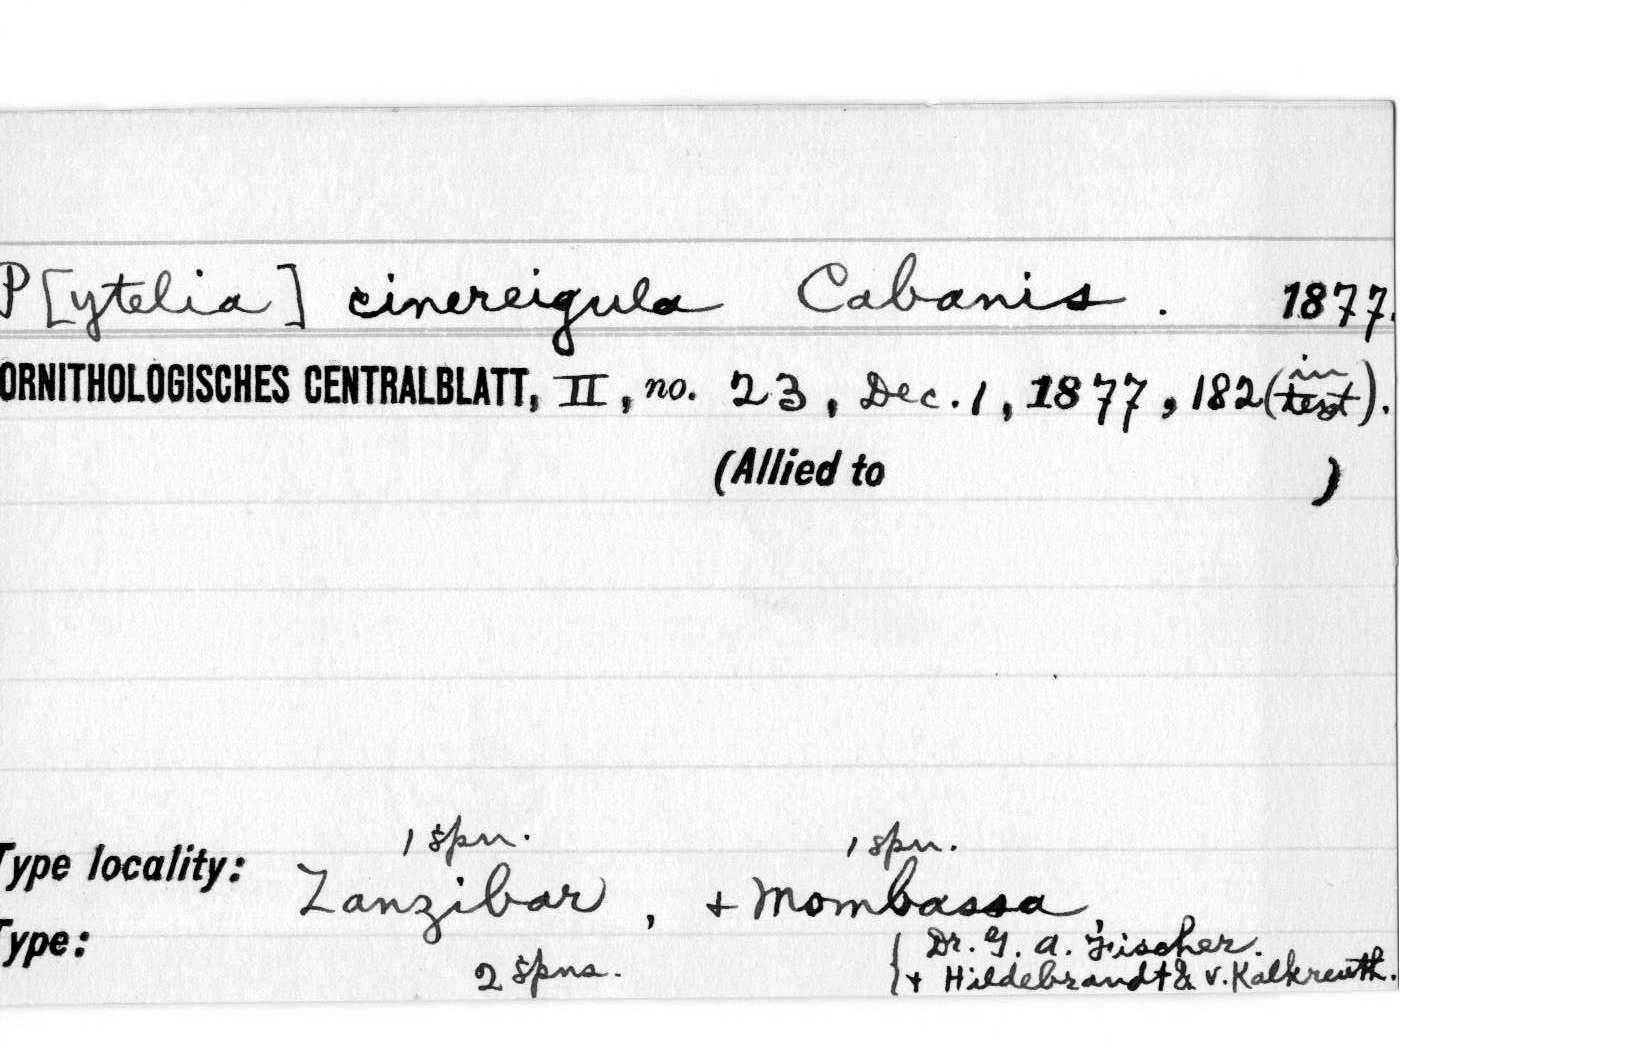 P[ytelia] cinereigula Cabanis. 1877.
ORNITHOLOGISCHES CENTRALBLATT, II, no. 23, Dec. 1, 1877, 182 (in text).
(Allied to )
1 spn. 1 spn.
Type locality: Zanzibar, + Mombassa,
Type: 2 spns. { Dr. G. A. Fischer.
+ Hildebrandt & v. Kalkreuth.